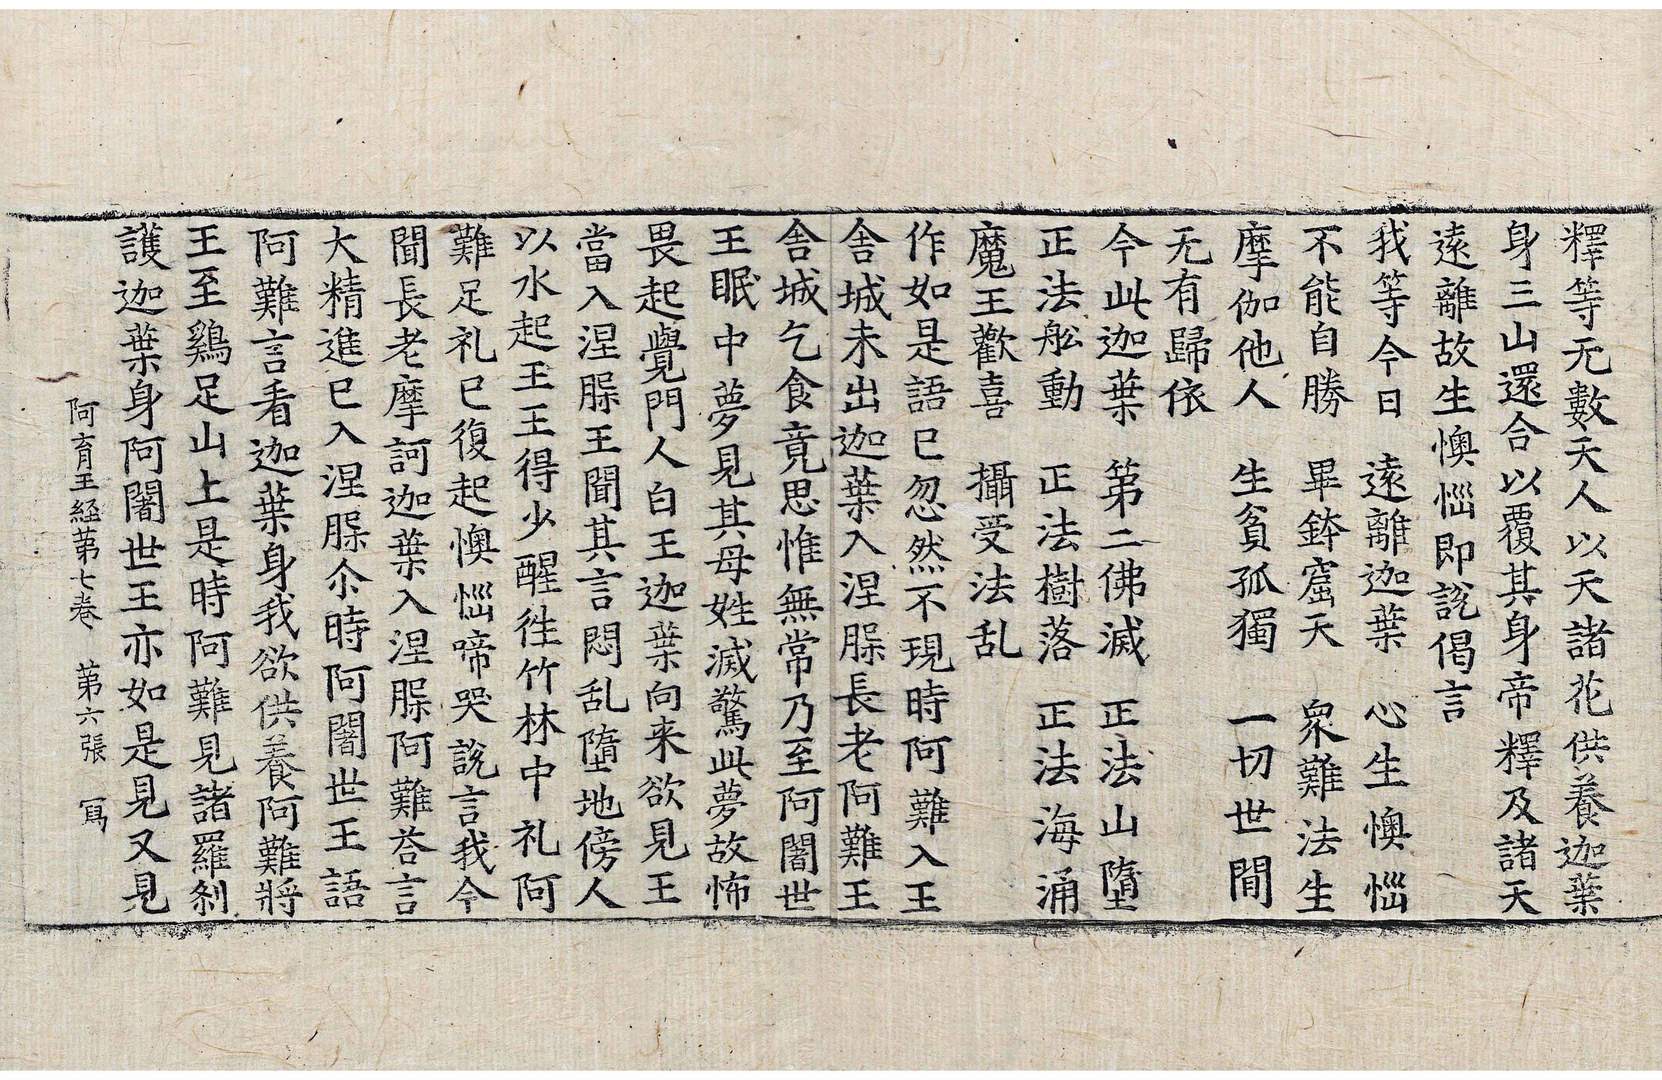 釋等无數天人以天諸花供養迦葉
身三山還合以覆其身帝釋及諸天
遠離故生懊惱即說偈言
我等今日　遠離迦葉　心生懊惱
不能自勝　畢鉢窟天　衆難法生
摩伽他人　生貧孤獨　一切世間
无有歸依
今此迦葉　第二佛滅　正法山墮
正法舩動　正法樹落　正法海涌
魔王歡喜　攝受法乱
作如是語已忽然不現時阿難入王
舍城未出迦葉入涅槃長老阿難王
舍城乞食竟思惟無常乃至阿闍世
王眠中夢見其母姓滅驚此夢故怖
畏起覺門人白王迦葉向来欲見王
當入涅槃王聞其言悶乱墮地傍人
以水起王王得少醒徃竹林中礼阿
難足礼已復起懊惱啼哭說言我今
聞長老摩訶迦葉入涅槃阿難荅言
大精進已入涅槃尒時阿闍世王語
阿難言看迦葉身我欲供養阿難將
王至鷄足山上是時阿難見諸羅剎
護迦葉身阿闍世王亦如是見又見
阿育王経第七卷　第六張　寫